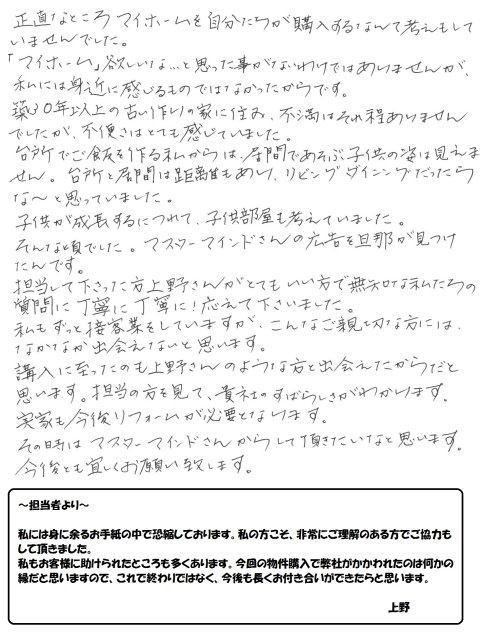 正直なところマイホームを自分たちが購入するなんて考えもして
いませんでした。
「マイホーム」欲しいな…と思った事がないわけではありませんが、
私には身近に感じるものではなかったからです。
築30年以上の古い作りの家に住み、不満はそれ程ありません
でしたが、不便さはとても感じていました。
台所でご飯を作る私からは、居間であそぶ子供の姿は見えま
せん。台所と居間は距離もあり、リビングダイニングだったら
な〜と思っていました。
子供が成長するにつれて、子供部屋も考えていました。
そんな頃でした。マスターマインドさんの広告を旦那が見つけ
たんです。
担当して下さった方上野さんがとてもいい方で無知な私たちの
質問に丁寧に丁寧に!応えて下さいました。
私もずっと接客業をしていますが、こんなご親切な方には、
なかなか出会えないと思います。
講入に至ったのも上野さんのような方と出会えたからだと
思います。担当の方を見て、貴社のすばらしさがわかります。
実家も今後リフォームが必要となります。
その時はマスターマインドさんからして頂きたいなと思います。
今後とも宜しくお願い致します。
〜担当者より〜
私には身に余るお手紙の中で恐縮しております。私の方こそ、非常にご理解のある方でご協力も
して頂きました。
私もお客様に助けられたところも多くあります。今回の物件購入で弊社がかかわれたのは何かの
縁だと思いますので、これで終わりではなく、今後も長くお付き合いができたらと思います。
上野